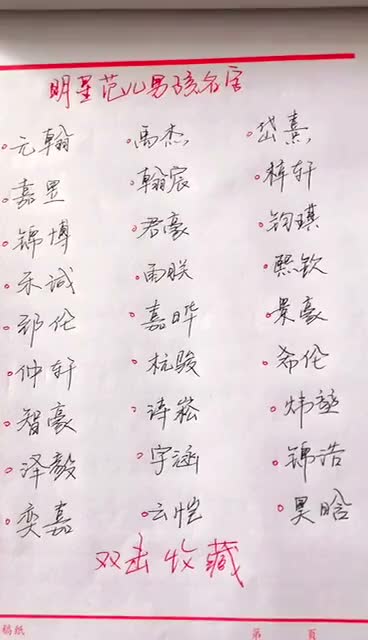 明星范儿男孩名字
元翰 禹杰 岱熹
嘉昱 翰宸 梓轩
锦博 君豪 钧琪
乐诚 雨朕 熙钦
郅伦 嘉晔 景豪
仲轩 杭骏 希伦
智豪 诗崧 炜堃
泽毅 宇涵 锦浩
奕嘉 云恺 昊晗
双击收藏
稿纸 第 页